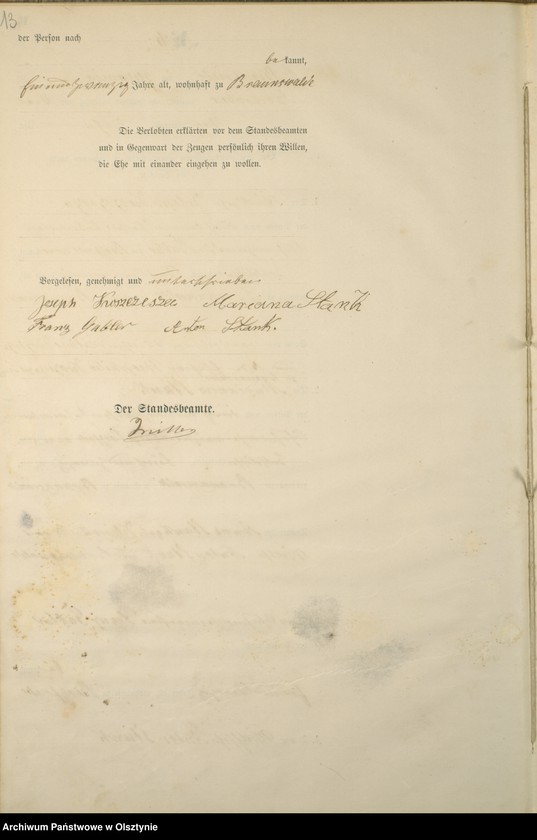 13
der Person nach
bekannt,
einundzwanzig Jahre alt, wohnhaft zu Braunswalde
Die Verlobten erklärten vor dem Standesbeamten
und in Gegenwart der Zeugen persönlich ihren Willen,
die Ehe mit einander eingehen zu wollen.
Vorgelesen, genehmigt und unterschrieben
Joseph Marianna Stank
Franz Gabler Anton Stank.
Der Standesbeamte.
Archiwum Państwowe w Olsztynie